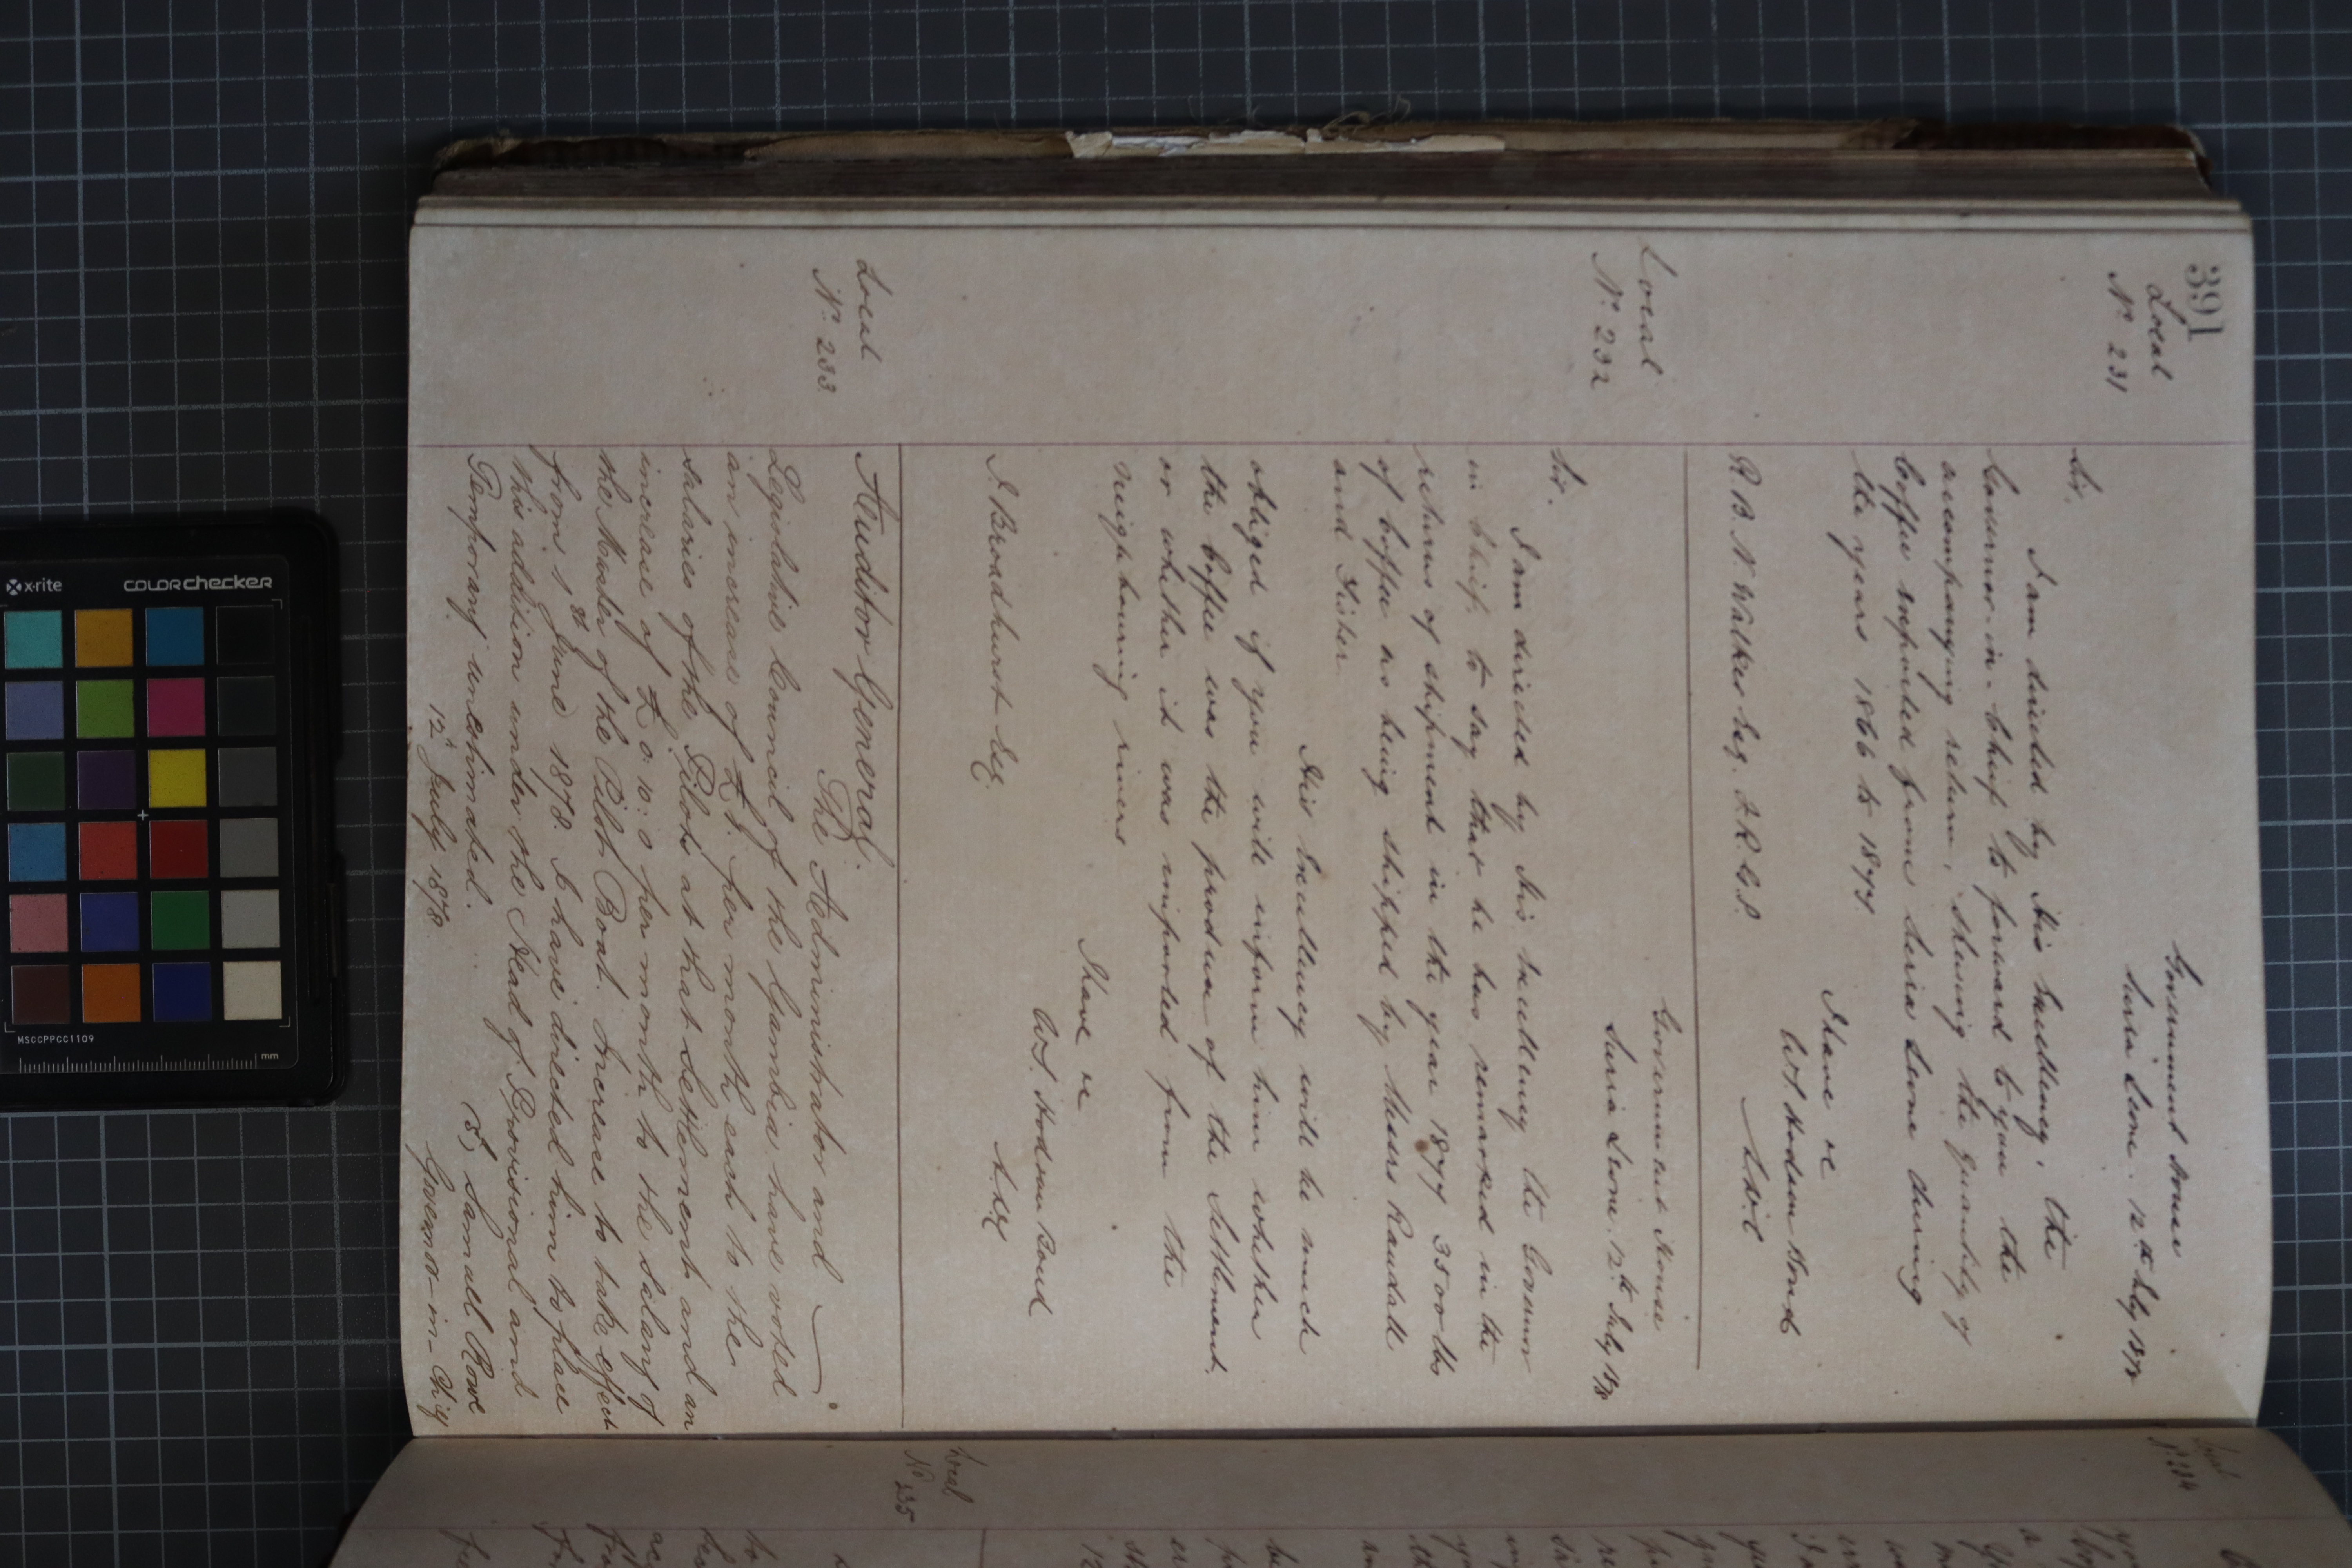 391
Local
Nº 231
Government House
Sierra Leone. 12th July 1878
Sir,
I am directed by His Excellency, the
Governor-in-Chief to forward to you the
accompanying return, shewing the quantity of
Coffee exported from Sierra Leone during
the years 1866 to 1877.
I have &c
W. Hodson Bond
R. B. N. Walker Esq. F.R.G.S.
Local
Nº 232
Government House
Sierra Leone. 12th July 1878
Sir.
I am directed by His Excellency the Governor
in Chief, to say that he has remarked in the
returns of shipment in the year 1877 3500 lbs
of Coffee as being shipped by Messrs Randall
and Fisher
His Excellency will be much
obliged if you will inform him whether
the Coffee was the produce of the Settlement.
or whether it was imported from the
neighbouring rivers
I have &c
W. Hodson Bond
J. Broadhurst Esq.
Local
Nº 233.
Auditor General.
The Administrator and
Legislative Council of the Gambia have voted
an increase of £1. per month each to the
salaries of the Pilots at that Settlement and an
increase of £0.10.0 per month to the salary of
the Master of the Pilot Boat. Increase to take effect
from 1st June 1878. I have directed him to place
this addition under the Head of Provisional and
Temporary unestimated.
(S) Samuel Rowe
12 July 1878
Governor-in-Chief
Local
Nº 234
Local
Nº 235
x-rite
COLORchecker
MSCCPPCC1109
mm